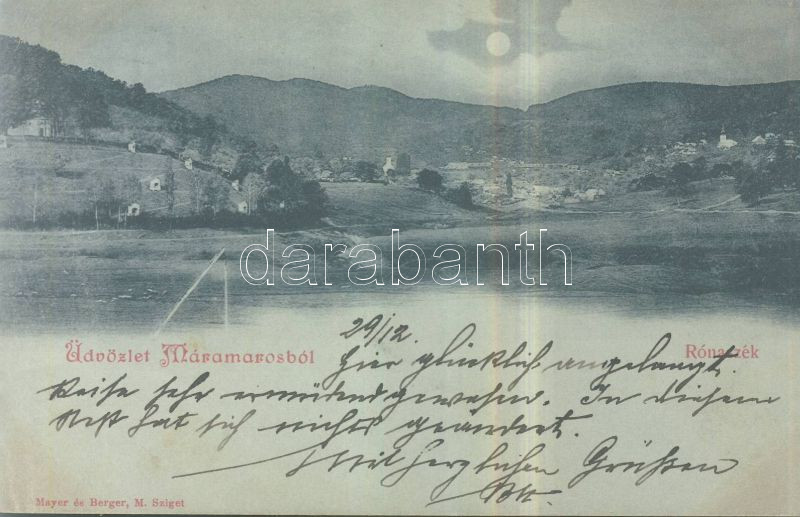 darabanth
29/12.
Üdvözlet Máramarosból
Rónaszék
Hier glücklich angelangt.
Reise sehr ermüdend gewesen. In diesem
Nest hat sich nichts geändert.
Mit herzlichen Grüßen
Mayer és Berger, M. Sziget